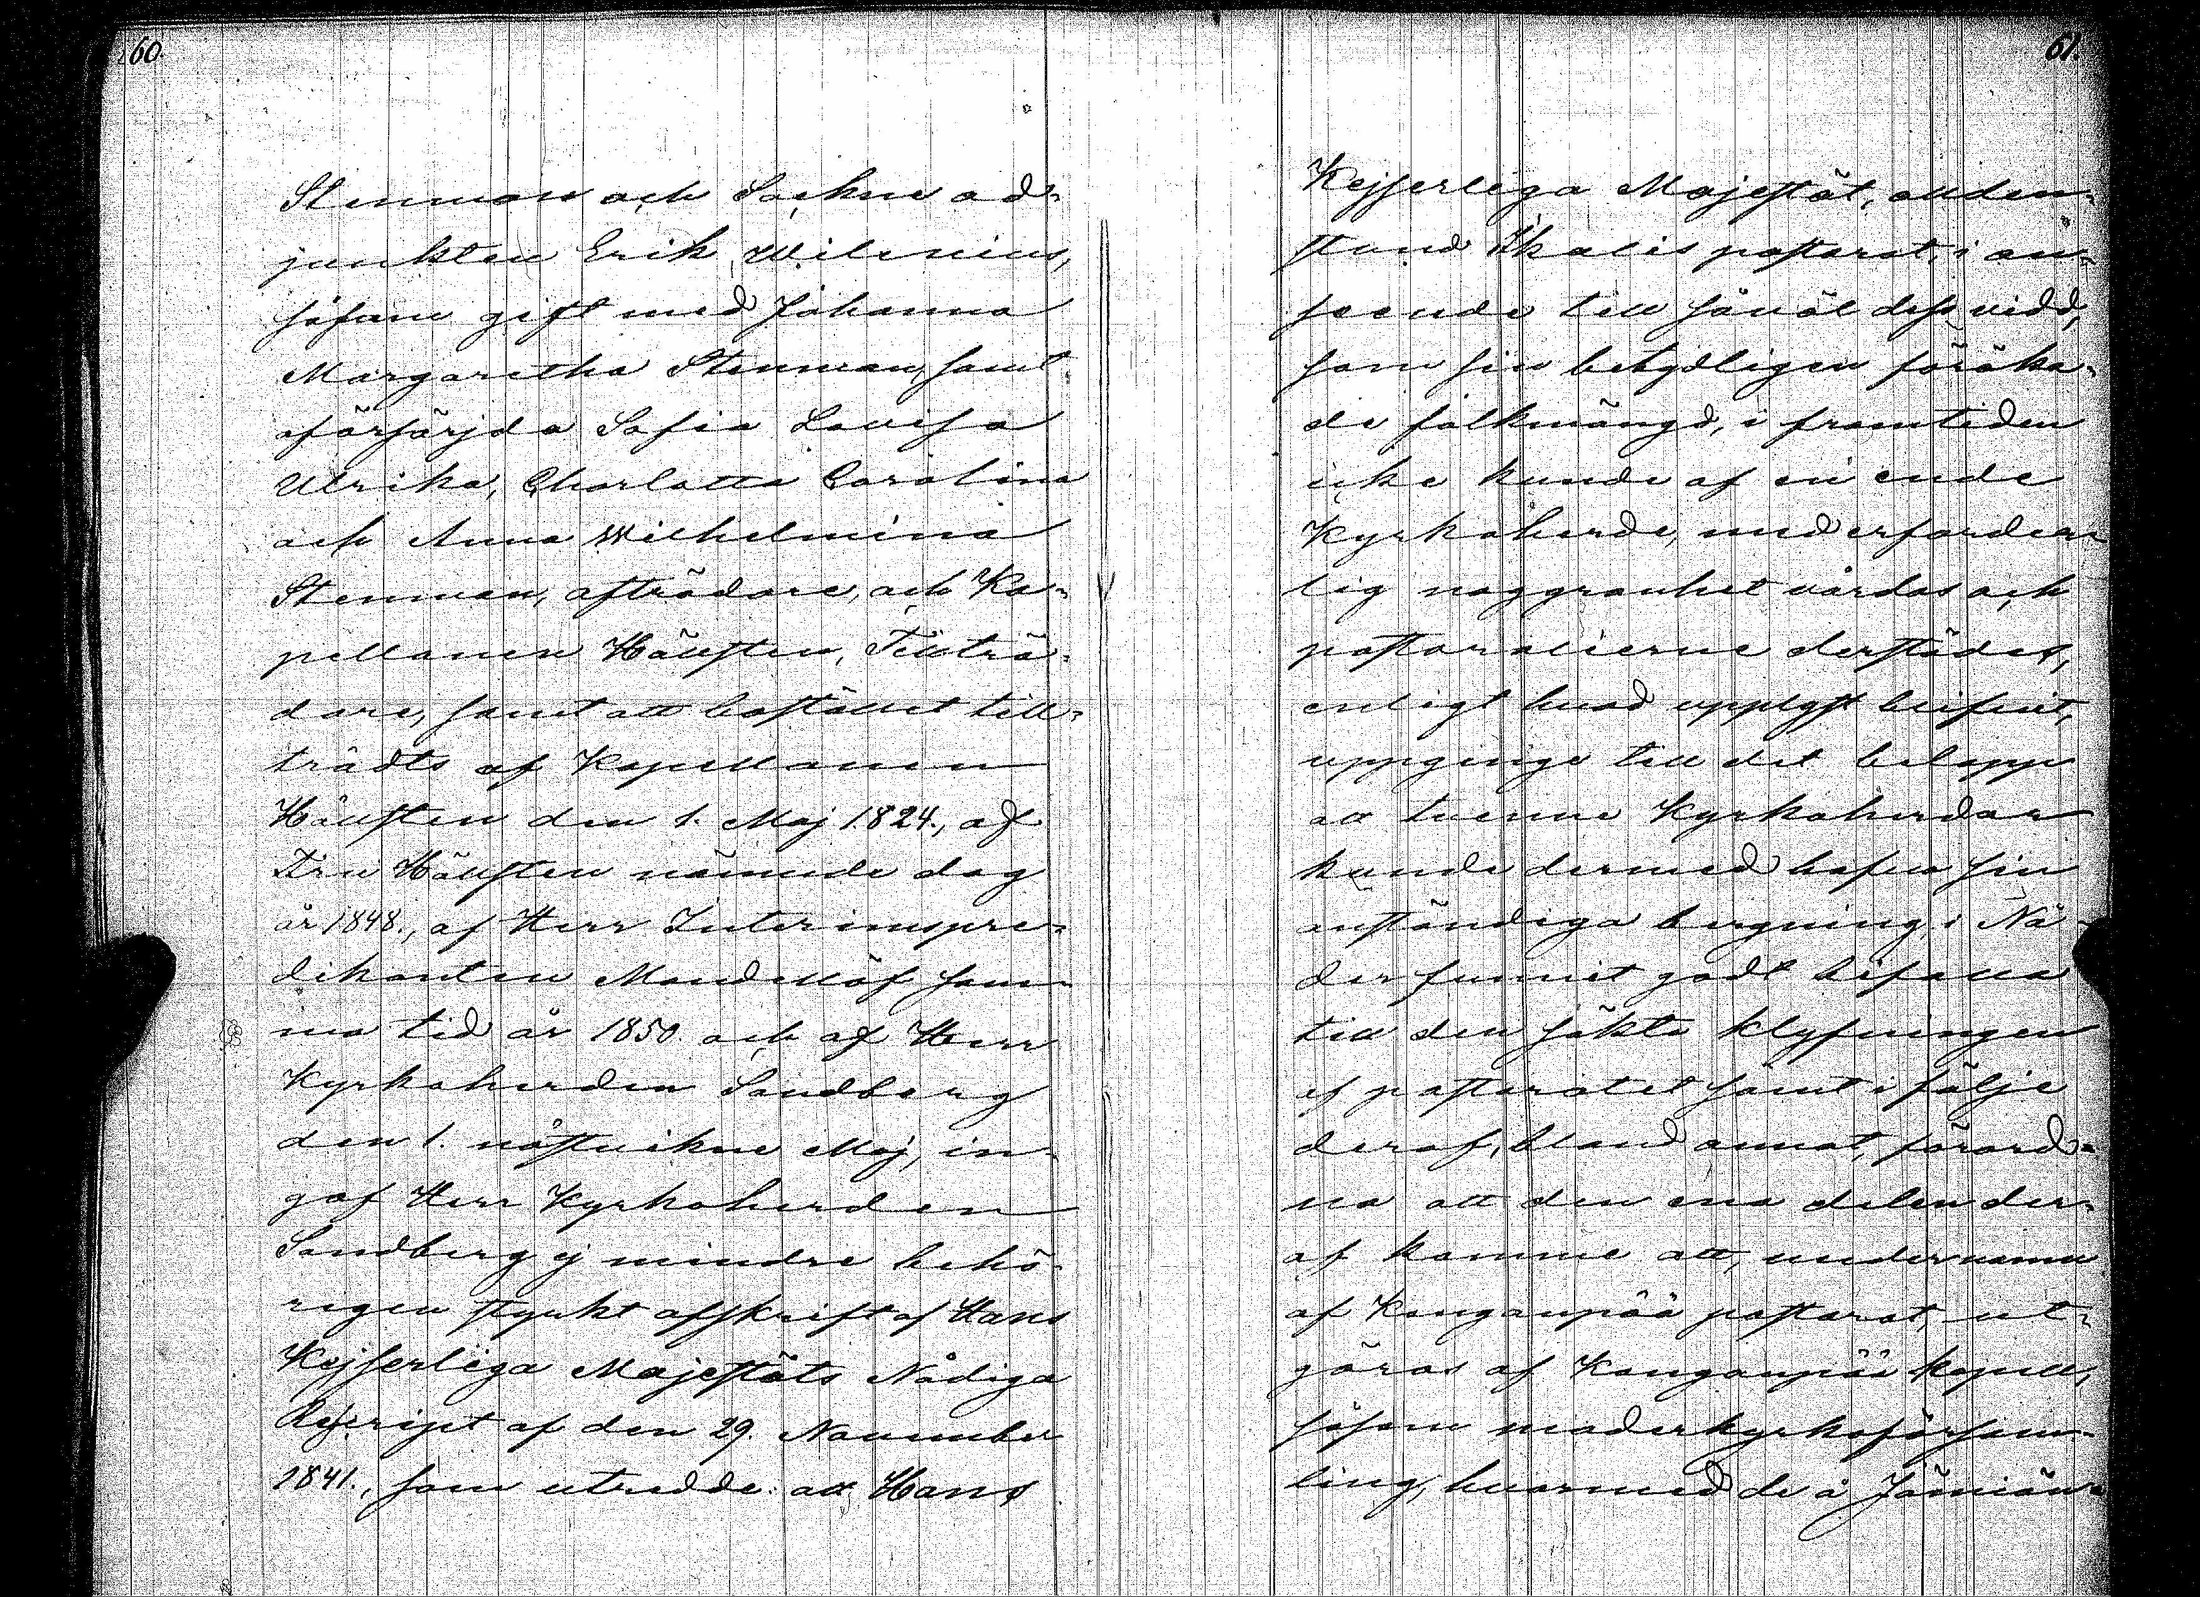 60.
Stenman och Sockne ad-
junkten Erik Wilenius,
såsom gift med Johanna
Margaretha Stenman, samt
oförsörjda Sofia Lovisa
Ulrika, Charlotta Carolina
och Anna Wilhelmina
Stenman, afträdare, och Ka-
pellanen Hällsten, Tillträ-
dare, samt att bostället till-
trädts af Kapellanen
Hällsten den 1. Maj 1824., af
Fru Hällsten nämnde dag
år 1848., af Herr Interimspre-
dikanten Mandellöf sam-
ma tid år 1850. och af Herr
Kyrkoherden Sandberg
den 1. nästvikne Maj, in-
gaf Herr Kyrkoherden
Sandberg ej mindre behö-
rigen styrkt afskrift af Hans
Kejserliga Majestäts Nådiga
Rescript af den 29. November
1841., som utredde: att Hans
61.
Kejserliga Majestät, alldен-
stund Ikalis pastorat, i an-
seende till såväl dess vidd,
som sin betydligen föröka-
de folkmängd, i framtiden
icke kunde af en ende
Kyrkoherde, med erforder-
lig noggranhet vårdas och
pastoralierne derstädes,
enligt hvad upplyst blifvit,
uppginge till det belopp
att tvenne Kyrkoherdar
kunde dermed hafva sin
anständiga bergning, i Nå-
der funnit godt bifalla
till den sökta klyfningen
af pastoratet samt i följe
deraf, bland annat, förord-
na att den ena delen der-
af komme att, under namn
af Kangaupää pastorat, ut-
göras af Kangaupää kapell,
såsom moderkyrkoförsam-
ling, hvarmed de å Jämiän-